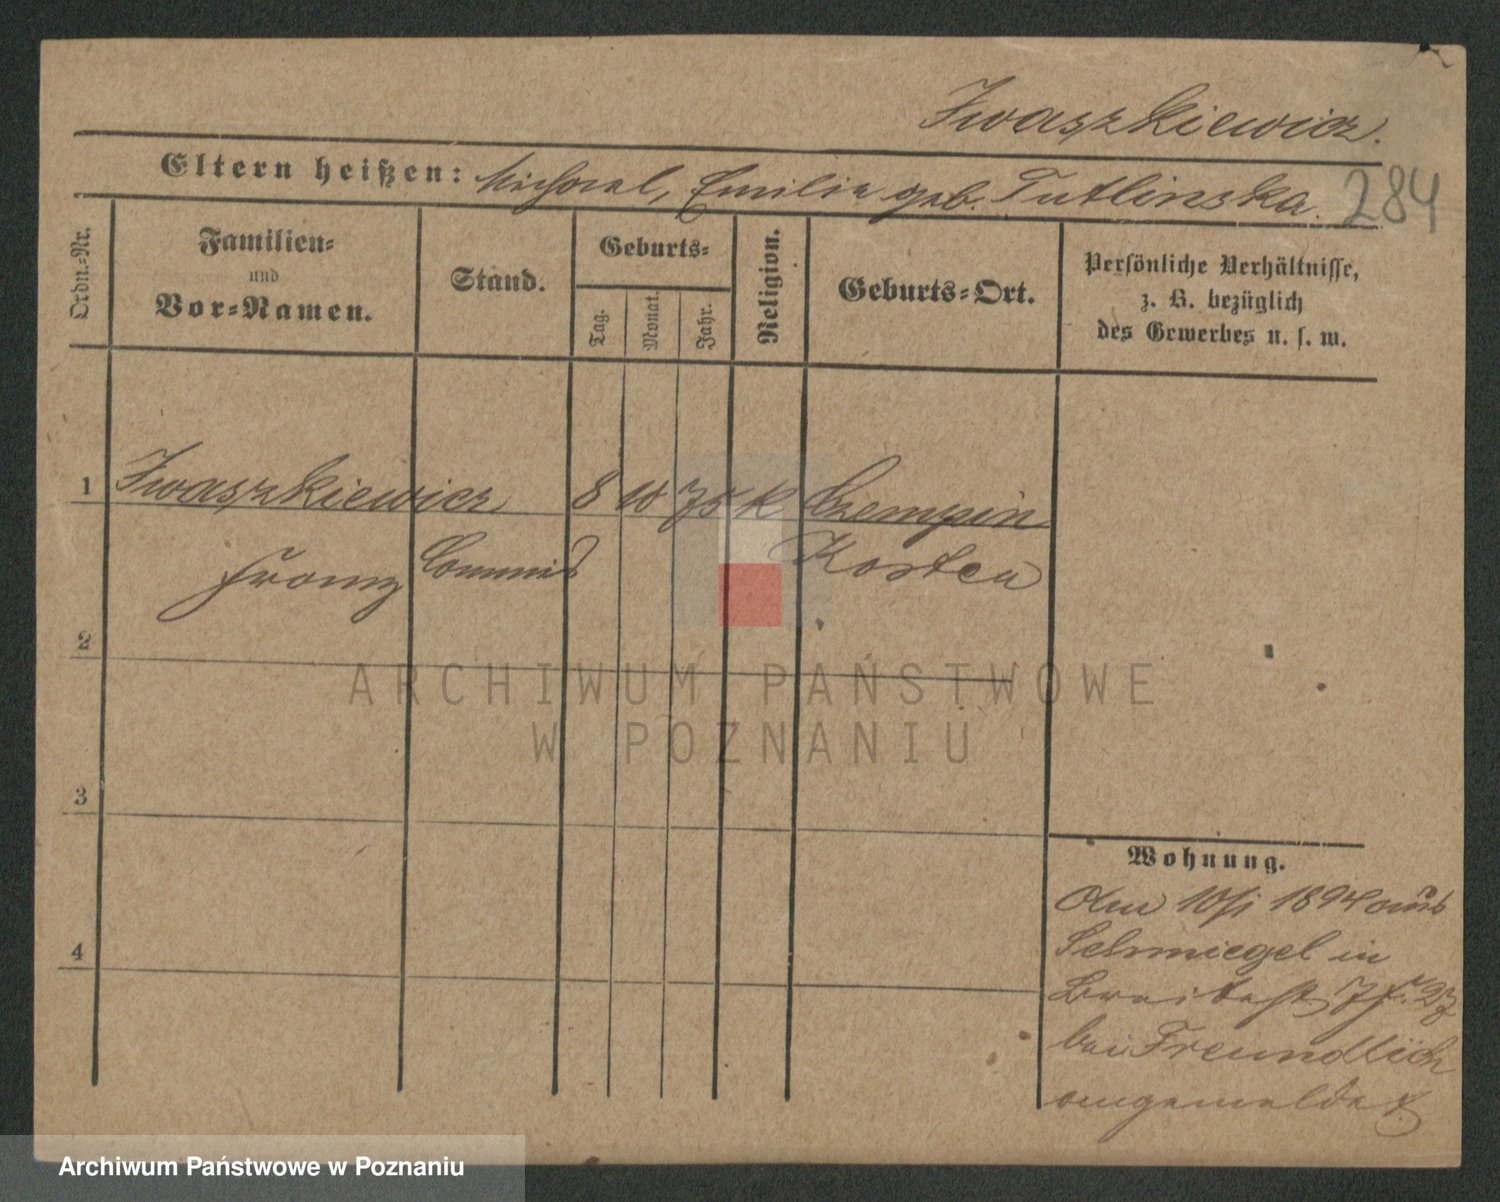 Iwaszkiewicz.
Eltern heißen: Michael, Emilie geb. Tutlinska.
284
Ordn.-Nr.
Familien-
und
Vor-Namen.
Stand.
Geburts-
Tag.
Monat.
Jahr.
Religion.
Geburts-Ort.
Persönliche Verhältnisse,
z. B. bezüglich
des Gewerbes u. s. w.
1 Iwaszkiewicz 8 10 75 K Czempin
Franz Commis Kosten
2
3
4
Wohnung.
Am 10/1 1894 aus
Schmiegel in
Breitestr 7
bei Freundlich
angemeldet
ARCHIWUM PAŃSTWOWE
W POZNANIU
Archiwum Państwowe w Poznaniu